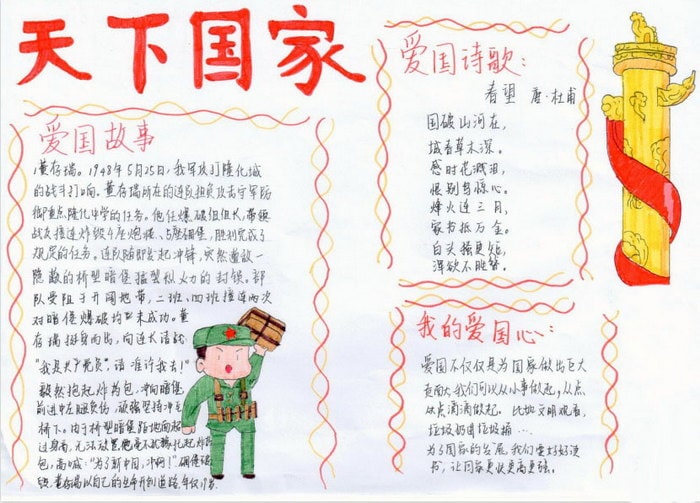 天下国家
爱国故事
董存瑞。1948年5月25日,我军攻打隆化城
的战斗打响。董存瑞所在的连队担负攻击守军防
御重点隆化中学的任务。他任爆破组组长,带领
战友接连炸毁4座炮楼、5座碉堡,胜利完成了
规定的任务。连队随即发起冲锋,突然遭敌一
隐蔽的桥型暗堡猛烈火力的封锁。部
队受阻于开阔地带,二班、四班接连两次
对暗堡爆破均未成功。董
存瑞挺身而出,向连长请战:
"我是共产党员,请准许我去!"
毅然抱起炸药包,冲向暗堡,
前进中左腿负伤,顽强坚持冲至
桥下。由于桥型暗堡距地面超
过身高,
包,高喊:"为了新中国,冲啊!"碉堡被
爱国诗歌:
春望 唐·杜甫
国破山河在,
城春草木深。
感时花溅泪,
恨别鸟惊心。
烽火连三月,
家书抵万金。
白头搔更短,
浑欲不胜簪。
我的爱国心:
爱国不仅仅是为国家做出巨大
贡献,我们可以从小事做起,从点
点滴滴做起。比如文明观看,
垃圾扔进垃圾桶……
为了国家的发展,我们要好好读
书,让国家更快更高更强。